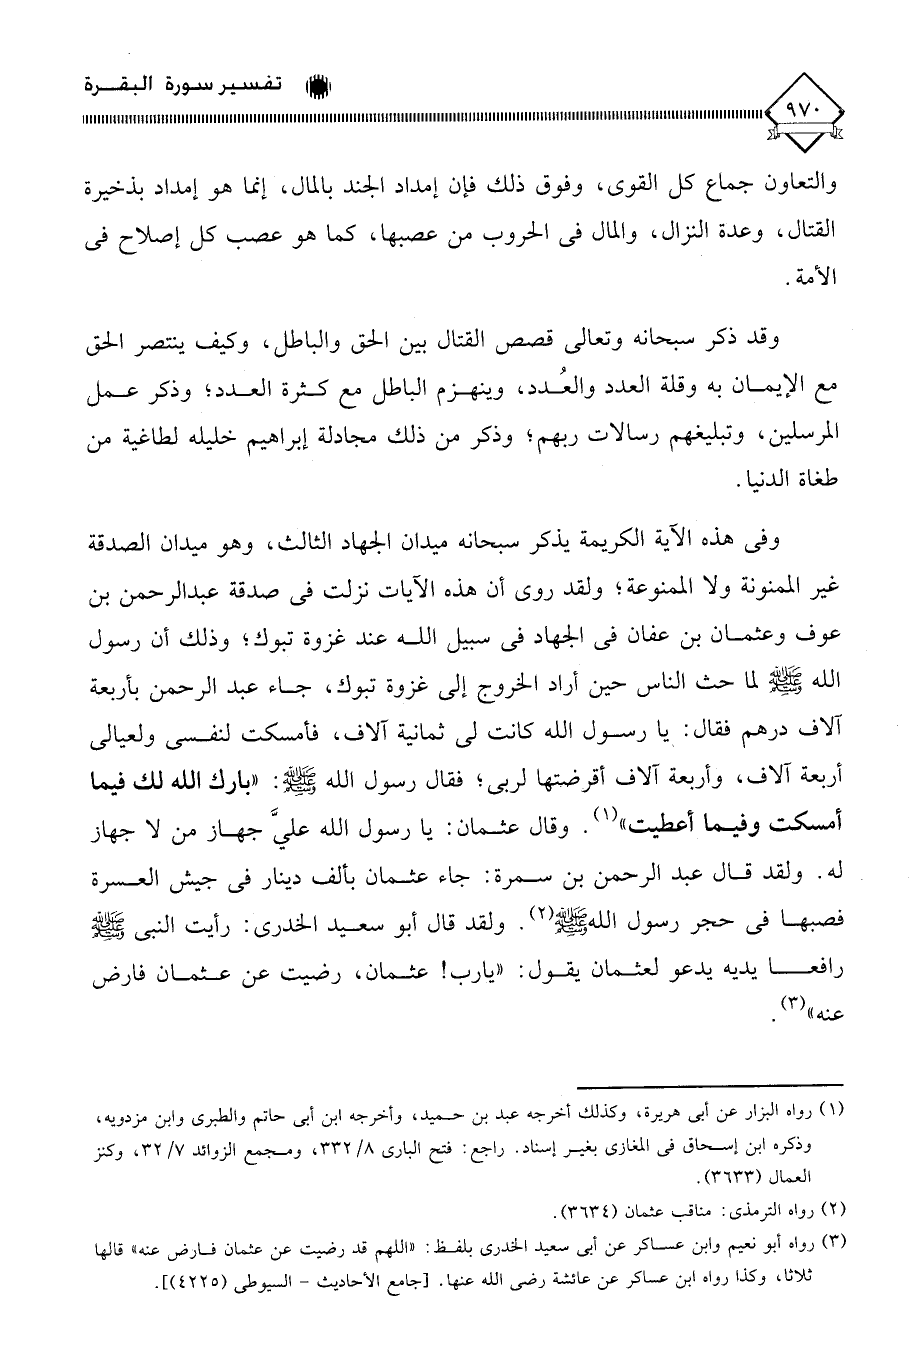 تفسير سورة البقرة
٩٧٠
والتعاون جماع كل القوى، وفوق ذلك فإن إمداد الجند بالمال، إنما هو إمداد بذخيرة
القتال، وعدة النزال، والمال فى الحروب من عصبها، كما هو عصب كل إصلاح فى
الأمة.
وقد ذكر سبحانه وتعالى قصص القتال بين الحق والباطل، وكيف ينتصر الحق
مع الإيمان به وقلة العدد والعُدد، وينهزم الباطل مع كثرة العدد؛ وذكر عمل
المرسلين، وتبليغهم رسالات ربهم؛ وذكر من ذلك مجادلة إبراهيم خليله لطاغية من
طغاة الدنيا.
وفى هذه الآية الكريمة يذكر سبحانه ميدان الجهاد الثالث، وهو ميدان الصدقة
غير الممنونة ولا الممنوعة؛ ولقد روى أن هذه الآيات نزلت فى صدقة عبدالرحمن بن
عوف وعثمان بن عفان فى الجهاد فى سبيل الله عند غزوة تبوك؛ وذلك أن رسول
الله ﷺ لما حث الناس حين أراد الخروج إلى غزوة تبوك، جاء عبد الرحمن بأربعة
آلاف درهم فقال: يا رسول الله كانت لى ثمانية آلاف، فأمسكت لنفسى ولعيالى
أربعة آلاف، وأربعة آلاف أقرضتها لربى؛ فقال رسول الله ﷺ: «بارك الله لك فيما
أمسكت وفيما أعطيت»(١). وقال عثمان: يا رسول الله عليَّ جهاز من لا جهاز
له. ولقد قال عبد الرحمن بن سمرة: جاء عثمان بألف دينار فى جيش العسرة
فصبها فى حجر رسول اللهﷺ(٢). ولقد قال أبو سعيد الخدرى: رأيت النبى ﷺ
رافعا يديه يدعو لعثمان يقول: «يارب! عثمان، رضيت عن عثمان فارض
عنه»(٣).
(١) رواه البزار عن أبى هريرة، وكذلك أخرجه عبد بن حميد، وأخرجه ابن أبى حاتم والطبرى وابن مزدويه،
وذكره ابن إسحاق فى المغازى بغير إسناد. راجع: فتح البارى ٨/ ٣٣٢، ومجمع الزوائد ٧/ ٣٢، وكنز
العمال (٣٦٣٣).
(٢) رواه الترمذى: مناقب عثمان (٣٦٣٤).
(٣) رواه أبو نعيم وابن عساكر عن أبى سعيد الخدرى بلفظ: «اللهم قد رضيت عن عثمان فارض عنه» قالها
ثلاثا، وكذا رواه ابن عساكر عن عائشة رضى الله عنها. [جامع الأحاديث - السيوطى (٤٢٢٥)].